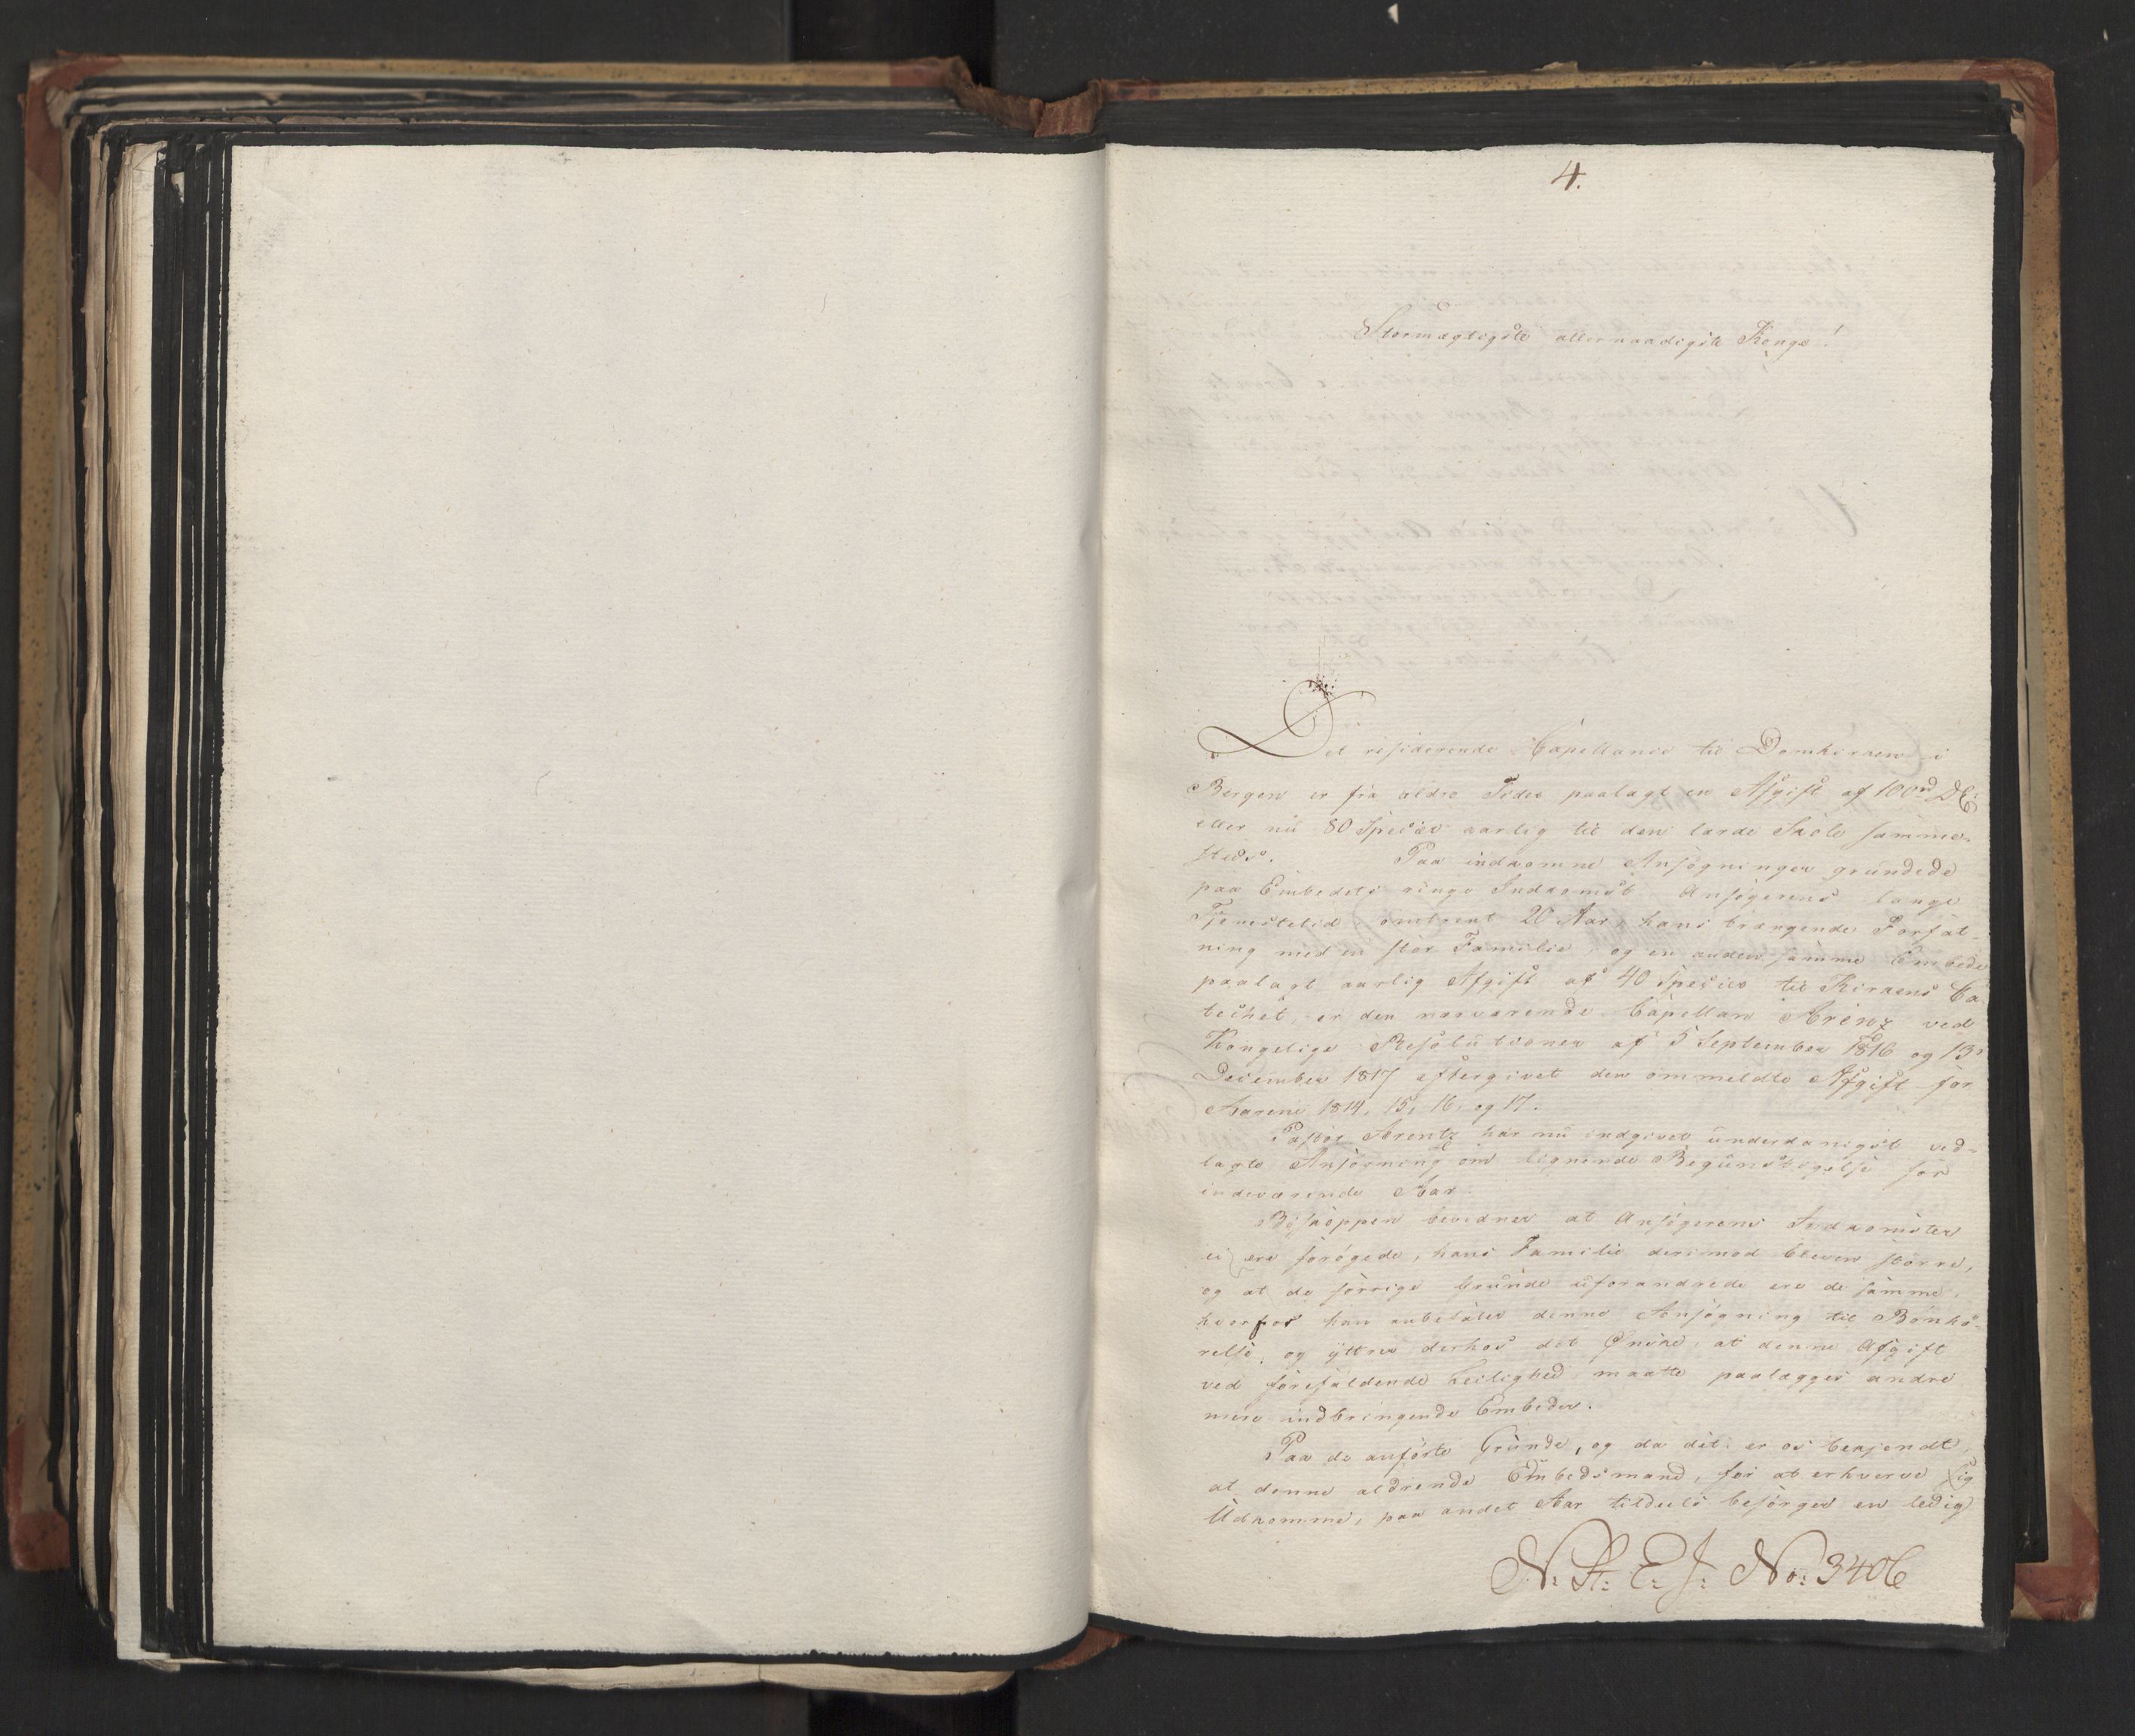 4.
Stormægtigste allernaadigste Konge!
Det residerende Capellanie til Domkirken i
Bergen er fra ældre Tider paalagt en Afgift af 100rd DC:
eller nu 80 Species aarlig til den lærde Skole samme-
steds. Paa indkomne Ansøgninger grundede
paa Embedets ringe Indkomst Ansøgerens lange
Tjenestetid, omtrent 20 Aar, hans trængende Forfat-
ning med en stor Familie, og en anden samme Embede
paalagt aarlig Afgift af 40 Species til Kirkens Ca-
techet, er den nærværende Capellan Arenz ved
Kongelige Resolutioner af 5 September 1816 og 13
December 1817 eftergivet den ommeldte Afgift for
Aarene 1814, 15, 16, og 17.
Pastor Arentz har nu indgivet underdanigst ved-
lagte Ansøgning om lignende Begunstigelse for
indeværende Aar.
Biskoppen bevidner at Ansøgerens Indkomster
ei ere forøgede, hans Familie derimod bleven større,
og at de forrige Grunde uforandrede ere de samme,
hvorfor han anbefaler denne Ansøgning til Bønhø-
relse, og yttrer derhos det Ønske, at denne Afgift
ved forefaldende Leilighed maatte paalægges andre
mere indbringende Embeder.
Paa de anførte Grunde, og da det er os bekjendt,
at denne aldrende Embedsmand, for at erhverve sig
Udkomme, paa andet Aar tildeels besørger en ledig
N: St: E: J: No: 3406